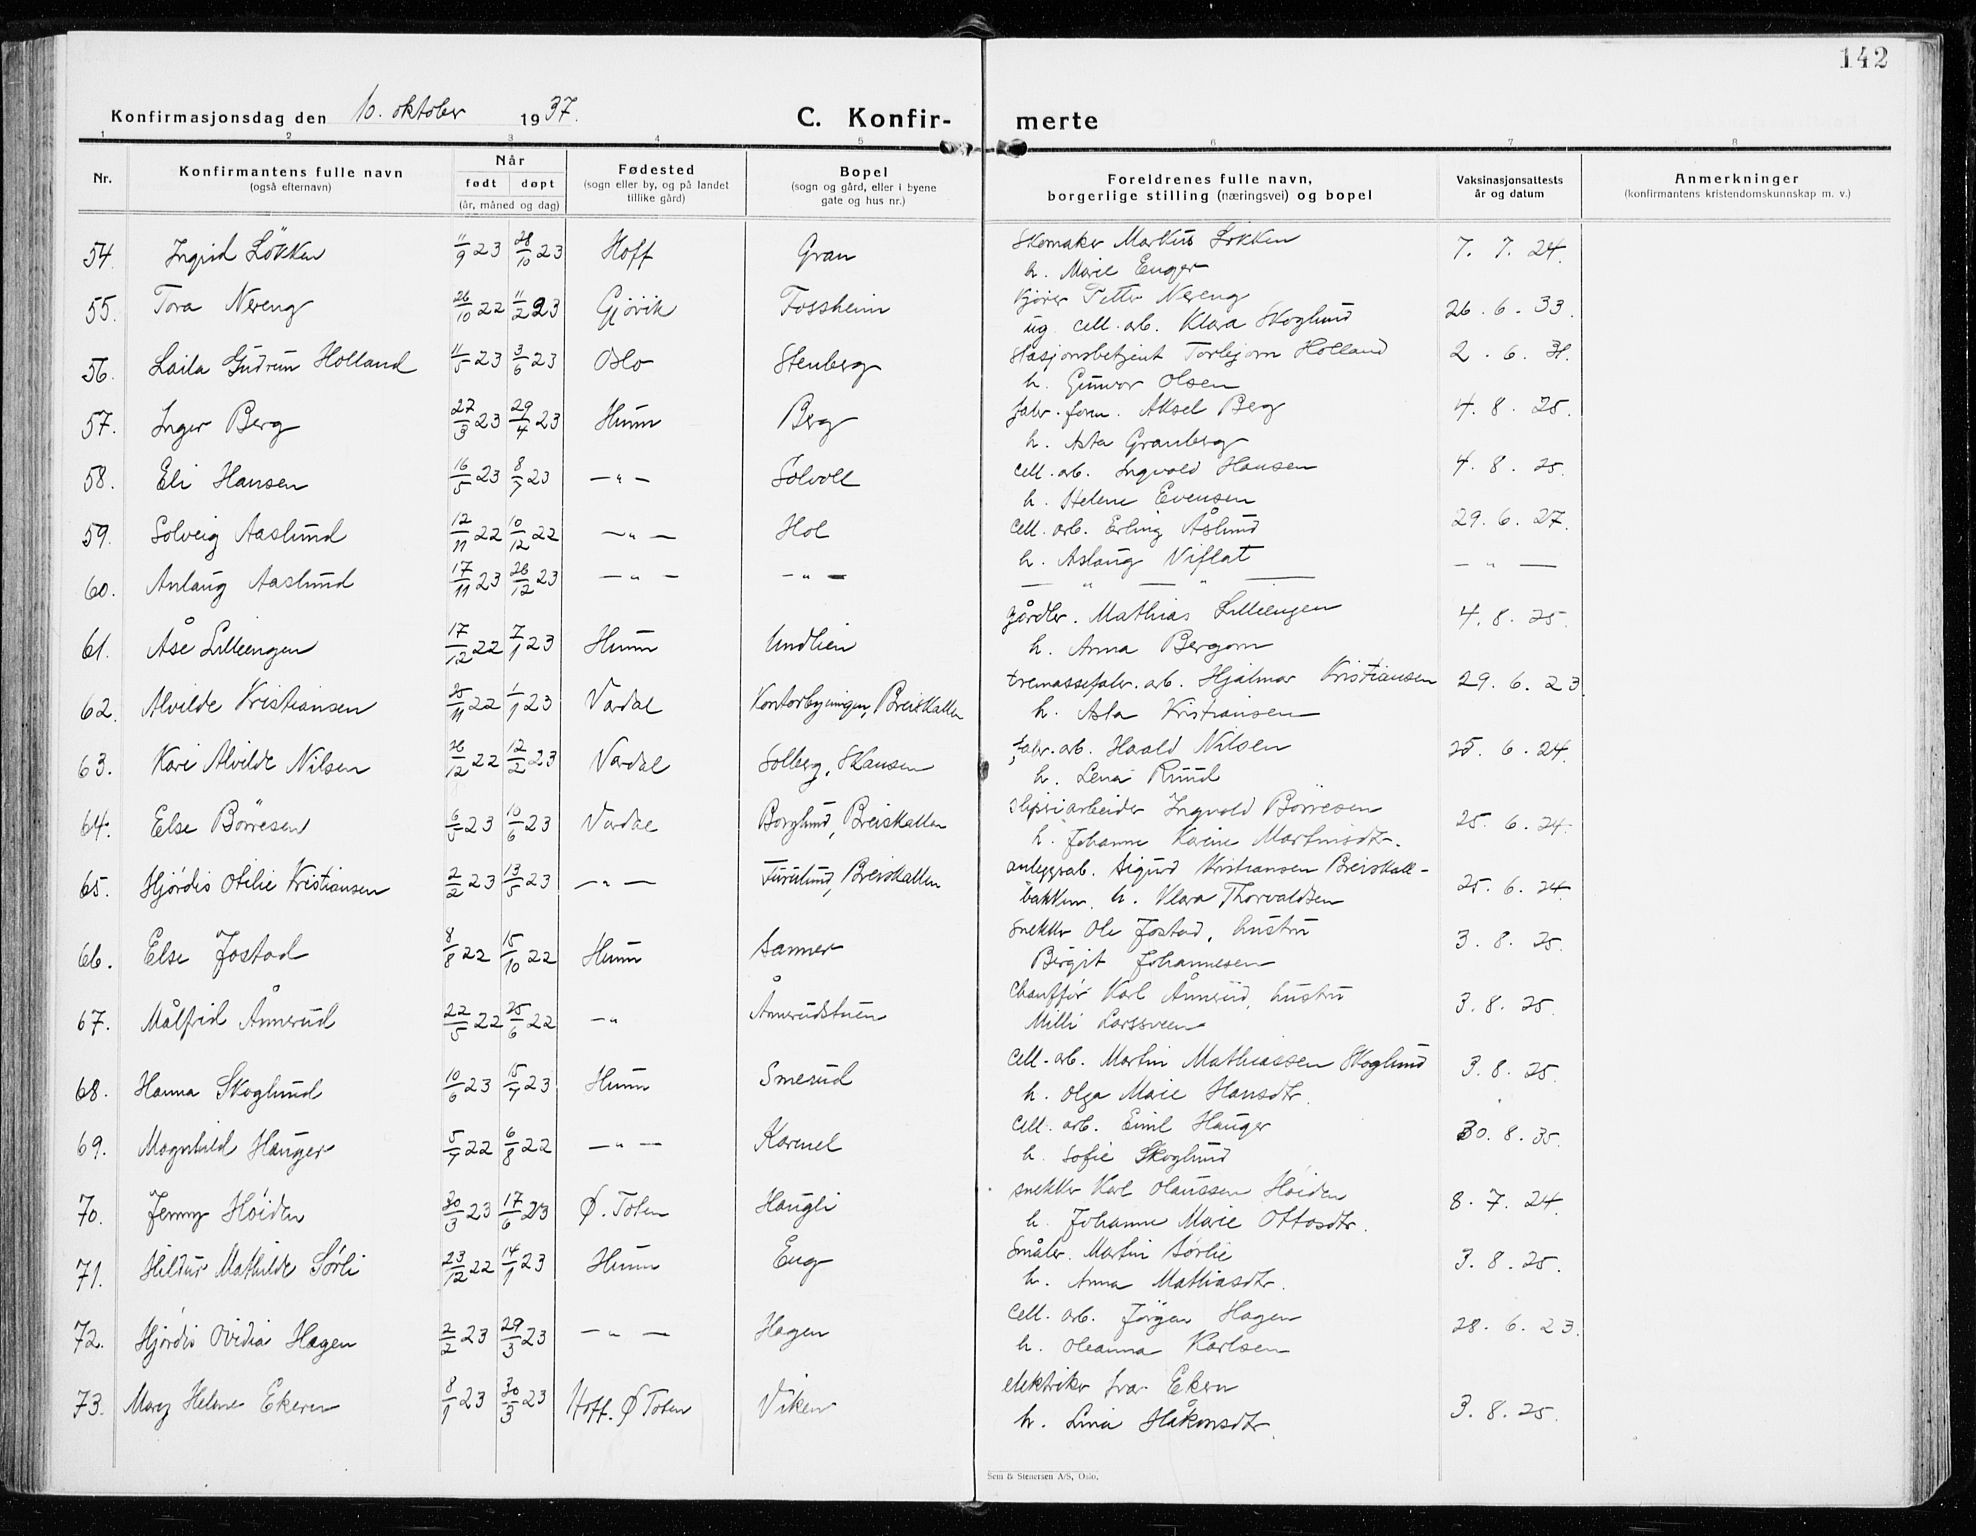 142
Konfirmasjonsdag den 10. oktober 1937.
C. Konfir- merte
1 2 3 4 5 6 7 8
Nr.
Konfirmantens fulle navn
(også efternavn)
Når
født døpt
(år, måned og dag)
Fødested
(sogn eller by, og på landet
tillike gård)
Bopel
(sogn og gård, eller i byene
gate og hus nr.)
Foreldrenes fulle navn,
borgerlige stilling (næringsvei) og bopel
Vaksinasjonsattests
år og datum
Anmerkninger
(konfirmantens kristendomskunnskap m. v.)
54. Ingrid Løkken 11/9 23 28/10 23 Hoff Gran Skomaker Markus Løkken 7. 7. 24.
h. Marie Enger
55. Tora Nereng 26/10 22 11/2 23 Gjøvik Fossheim Kjører Petter Nereng 26. 6. 33.
ug. cell. arb. Klara Skoglund
56. Laila Gudrun Holland 11/5 23 3/6 23 Oslo Stenberg Stasjonsbetjent Torbjørn Holland 2. 6. 31.
h. Gunvor Olsen
57. Inger Berg 27/3 23 29/4 23 Hunn Berg fabr. form. Aksel Berg 4. 8. 25.
h. Asta Granberg
58. Eli Hansen 16/5 23 8/7 23 — " — Solvoll cell. arb. Ingvald Hansen 4. 8. 25.
h. Helene Evensen
59. Solveig Aaslund 12/11 22 10/12 22 — " — Hol cell. arb. Erling Åslund 29. 6. 27.
h. Aslaug Viflat
60. Anlaug Aaslund 17/11 23 26/12 23 — " — — " — — " — " — — " —
61. Åse Lilleengen 17/12 22 7/1 23 Hunn Undlien gårdbr. Mathias Lilleengen 4. 8. 25.
h. Anna Bergom
62. Alvilde Kristiansen 25/11 22 1/1 23 Vardal Kontorbygningen, Breiskallen tremassefabr. arb. Hjalmar Kristiansen 29. 6. 23.
h. Asta Kristiansen
63. Kari Alvilde Nilsen 26/12 22 12/2 23 Vardal Solberg, Skansen fabr. arb. Harald Nilsen 25. 6. 24.
h. Lena Ruud
64. Else Børresen 6/5 23 10/6 23 Vardal Borglund, Breiskallen Sliperiarbeider Ingvald Børresen 25. 6. 24.
h. Johanne Karine Martinsdtr.
65. Hjørdis Otilie Kristiansen 2/2 23 13/5 23 — " — Furulund, Breiskallen anleggsarb. Sigurd Kristiansen Breiskall-
bakken. h. Klara Thorvaldsen 25. 6. 24.
66. Else Jostad 8/8 22 15/10 22 Hunn Sanner Snekker Ole Jostad, hustru 3. 8. 25.
Birgit Johannesen
67. Målfrid Ånnerud 22/5 22 25/6 22 — " Ånnerudstuen Chauffør Karl Ånnerud, hustru 3. 8. 25.
Milli Larssveen
68. Hanna Skoglund 10/6 23 15/7 23 Hunn Smerud Cell. arb. Martin Mathiassen Skoglund 3. 8. 25.
h. Olga Marie Hansdtr.
69. Magnhild Hauger 5/7 22 6/8 22 — " — Karmel Cell. arb. Emil Hauger 30. 8. 35.
h. Sofie Skoglund
70. Jenny Høiden 30/3 23 17/6 23 Ø. Toten Haugli snekker Karl Olaussen Høiden 8. 7. 24.
h. Johanne Marie Ottosdtr.
71. Hildur Mathilde Sørli 23/12 22 14/1 23 Hunn Eng Småbr. Martin Sørlie 3. 8. 25.
h. Anna Mathiasdtr.
72. Hjørdis Ovidia Hagen 2/2 23 29/3 23 — " — Hagen Cell. arb. Jørgen Hagen 28. 6. 23.
h. Oleanna Karlsen
73. Mary Helene Ekeren 8/1 23 30/3 23 Hoff. Ø Toten Viken elektriker Ivar Ekern 3. 8. 25.
h. Lina Håkonsdtr.
Sem & Stenersen A/S, Oslo.